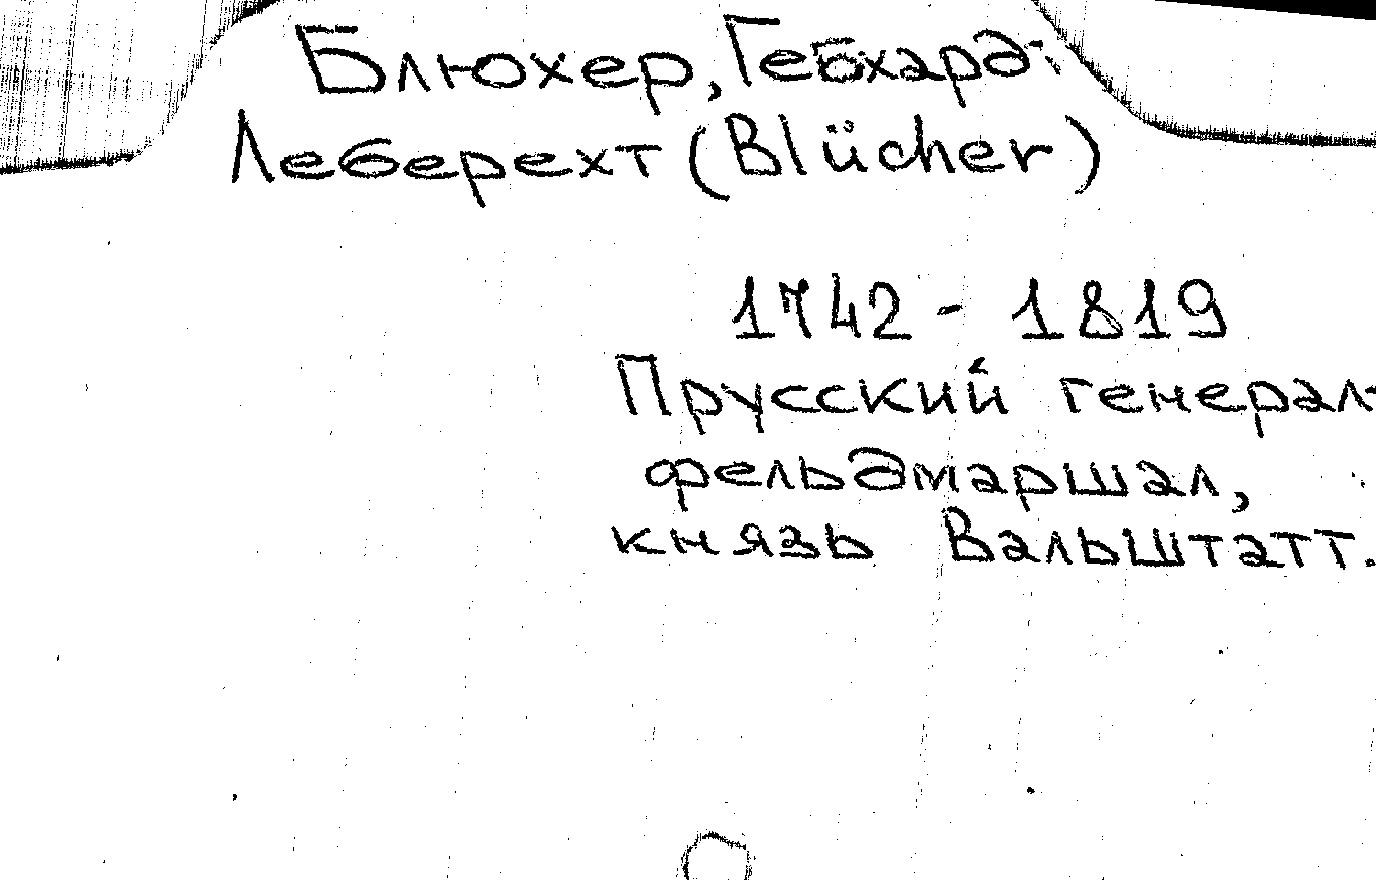 Блюхер, Гебхард-
Леберехт (Blücher)
1742 - 1819
Прусский генерал-
фельдмаршал,
князь Вальштатт.